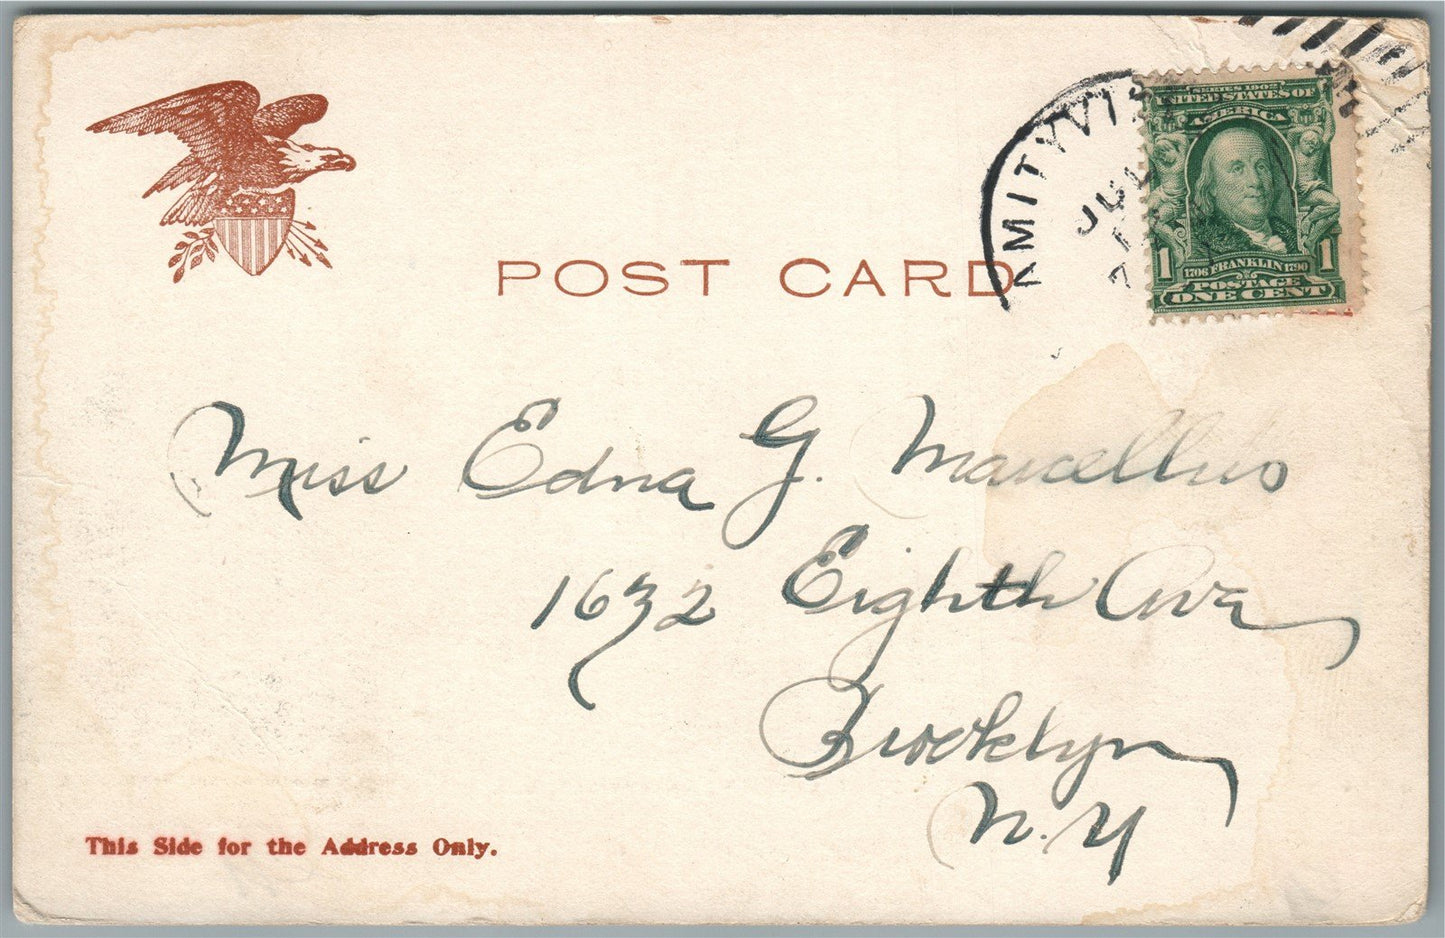 SERIES 1902
UNITED STATES OF
AMERICA
1 1
1706 FRANKLIN 1790
POSTAGE
ONE CENT
AMITYVI
JUL
POST CARD
Miss Edna G. Marcellus
1632 Eighth Ave
Brooklyn
N.Y
This Side for the Address Only.